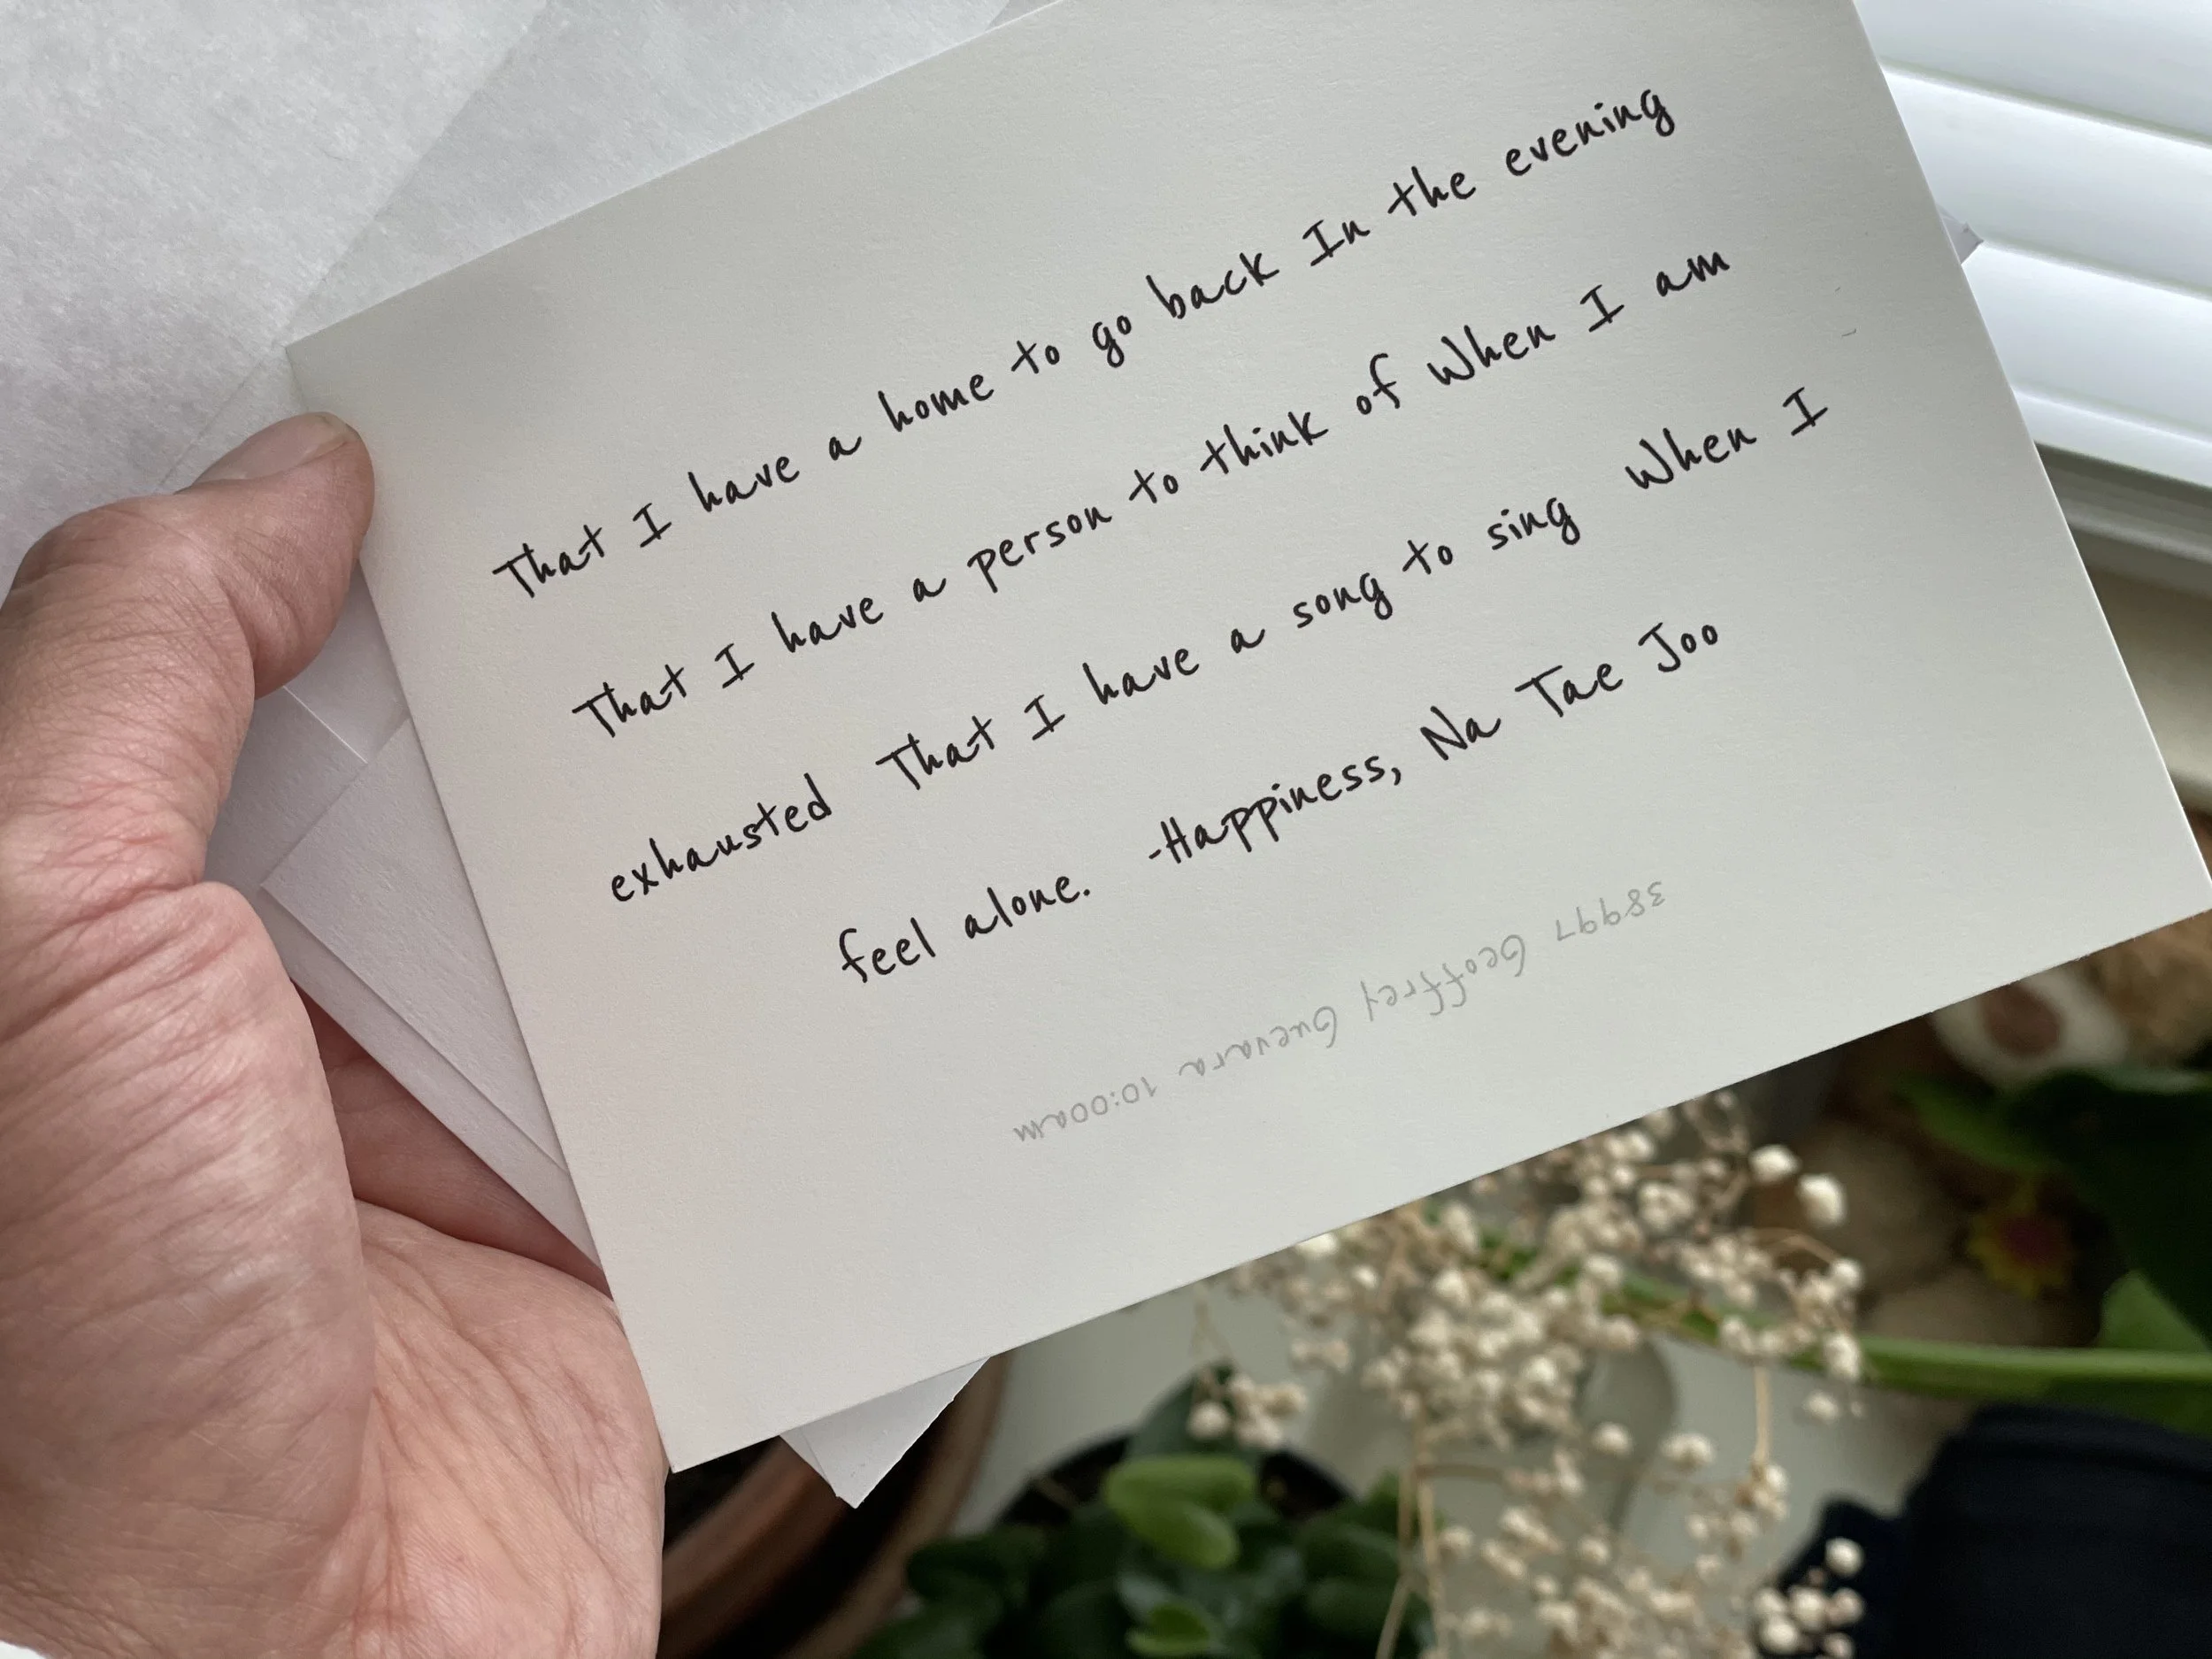 That I have a home to go back In the evening
That I have a person to think of When I am
exhausted That I have a song to sing When I
feel alone. -Happiness, Na Tae Joo
38997 Geoffrey Guevara 10:00am